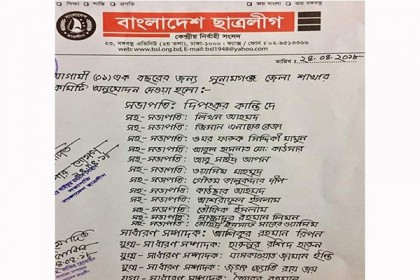 বাংলাদেশ ছাত্রলীগ
কেন্দ্রীয় নির্বাহী সংসদ
২৩, বঙ্গবন্ধু এভিনিউ (২য় তলা), ঢাকা-১০০০।
www.bsl.org.bd, E-mail: bsl1948@yahoo.com
তারিখ: ২৪.০৪.২০১৮
আগামী (০১) এক বছরের জন্য সুনামগঞ্জ জেলা শাখার
কমিটি অনুমোদন দেওয়া হলো:-
সভাপতি: দিপংকর কান্তি দে
সহ-সভাপতি: লিখন আহমদ
সহ-সভাপতি: জিসান এনায়েত রেজা
সহ-সভাপতি: ওমর ফারুক সিদ্দিকী মামুন
সহ-সভাপতি: আবুল হাসনাত মো: কাওসার
সহ-সভাপতি: আবু সাঈদ আপন
সহ-সভাপতি: ওয়াসিম মাহমুদ
সহ-সভাপতি: গৌতম তালুকদার দীপ
সহ-সভাপতি: কাউছার আহমদ
সহ-সভাপতি: আশরাফুল ইসলাম
সহ-সভাপতি: তৌফিক ইসলাম
সহ-সভাপতি: রহমান লিমন
সাধারণ সম্পাদক: আশিকুর রহমান রিপন
যুগ্ম-সাধারণ সম্পাদক: হারুনুর রশিদ হারুন
যুগ্ম-সাধারণ সম্পাদক: জামান ইফতি
যুগ্ম-সাধারণ সম্পাদক: জগৎ জ্যোতি রায় জয়
রহমান